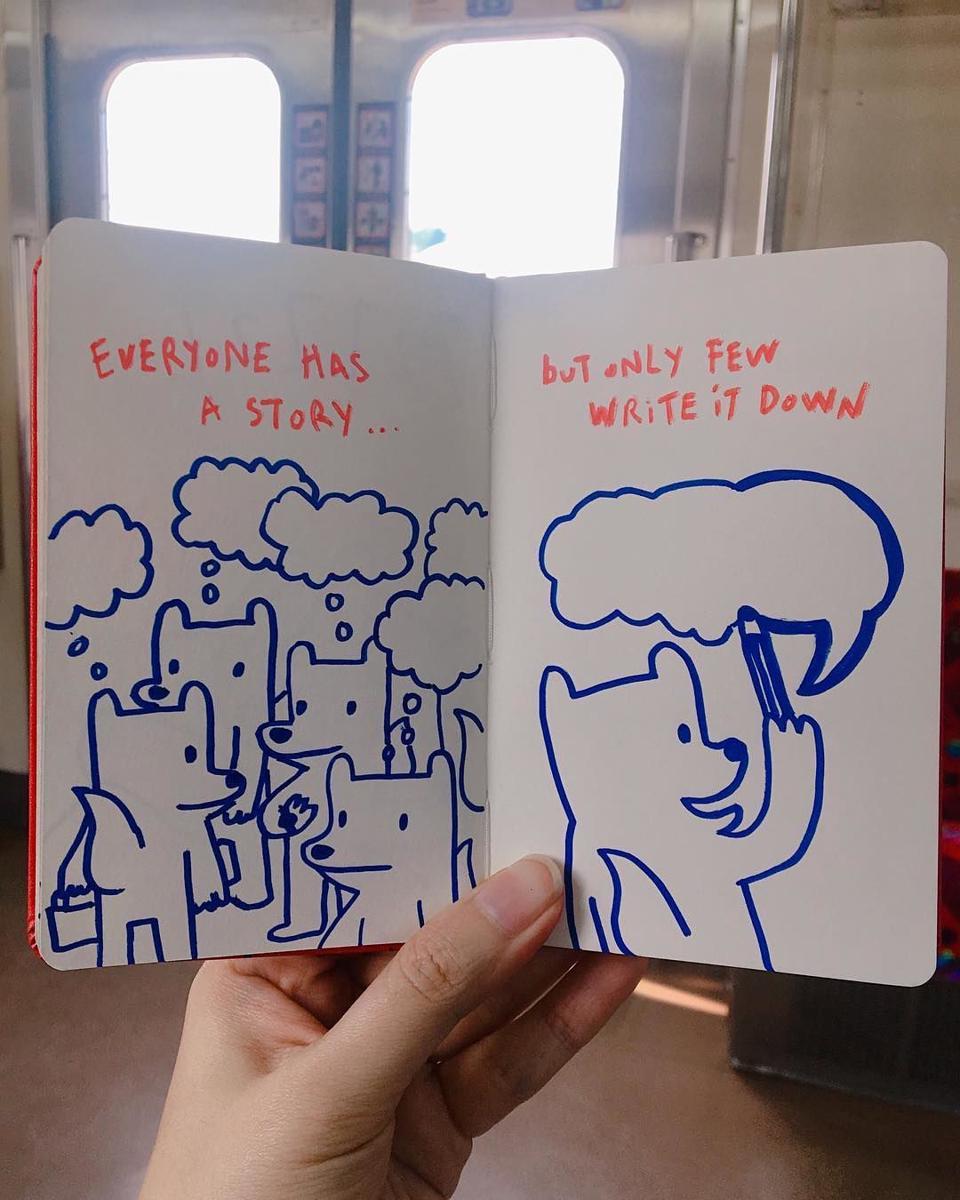 EVERYONE HAS
A STORY...
bUT ONLY FEW
WRiTE iT DOWN